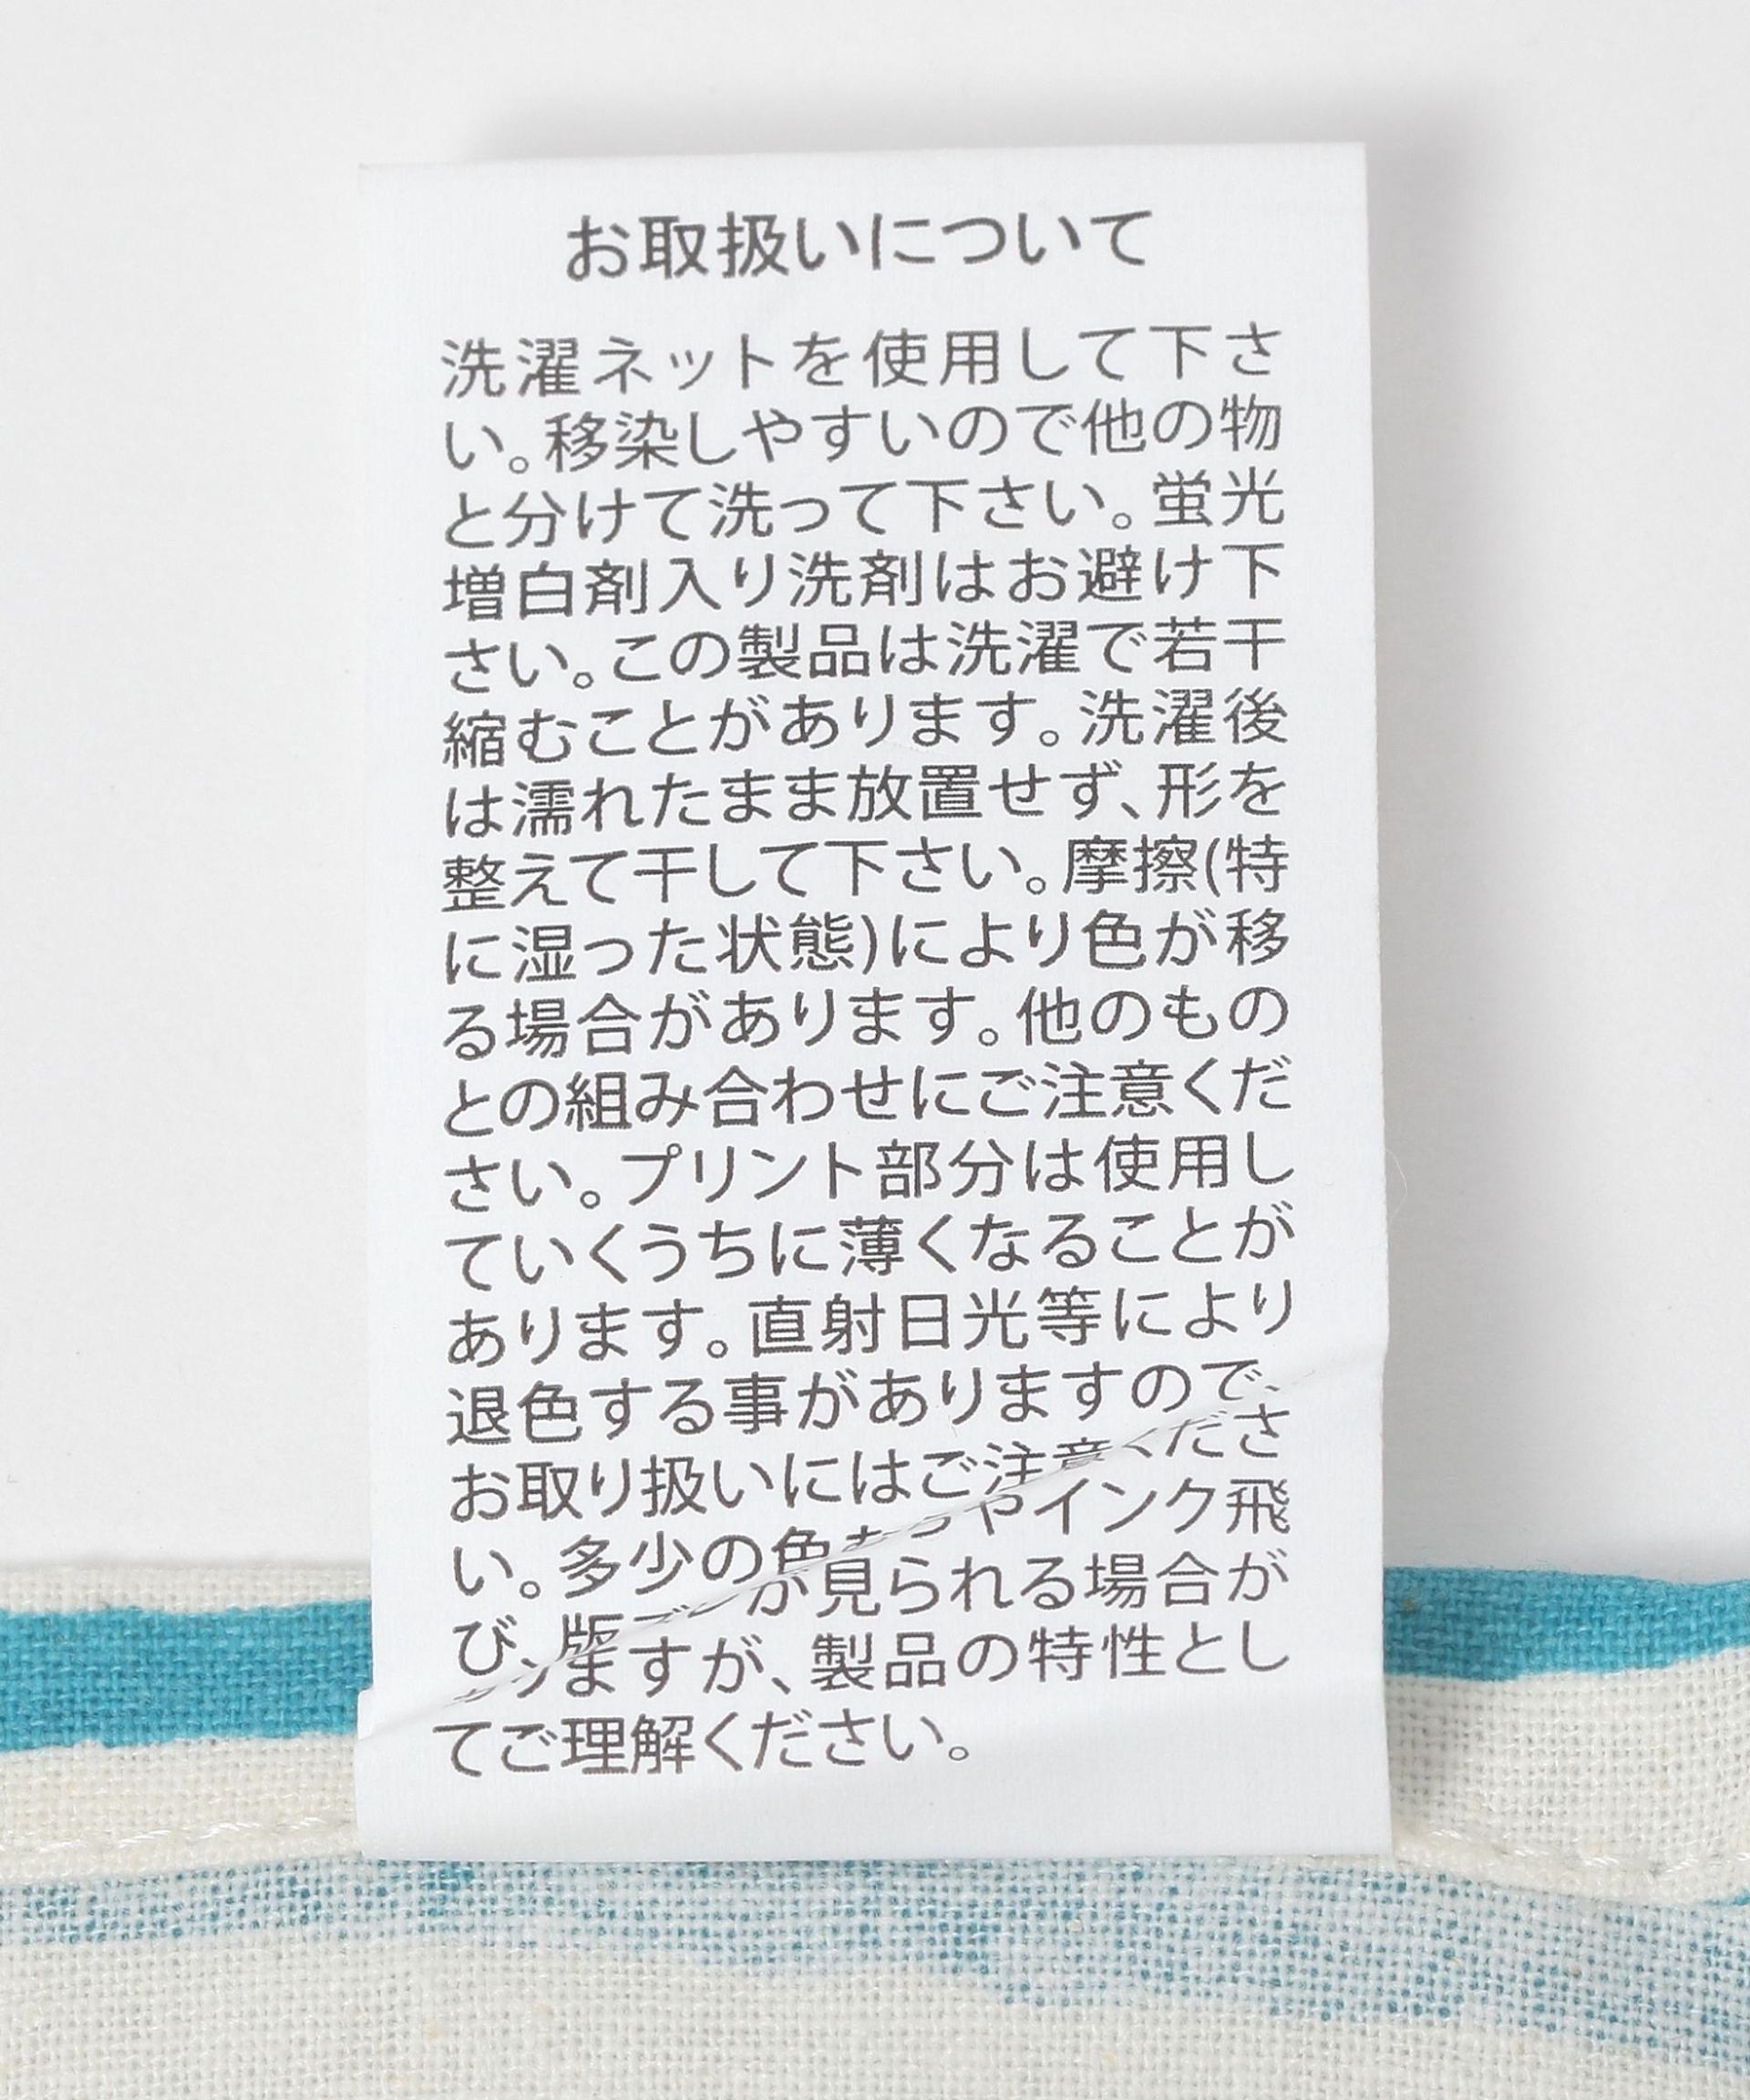 お取扱いについて
洗濯ネットを使用して下さ
い。移染しやすいので他の物
と分けて洗って下さい。蛍光
増白剤入り洗剤はお避け下
さい。この製品は洗濯で若干
縮むことがあります。洗濯後
は濡れたまま放置せず、形を
整えて干して下さい。摩擦(特
に湿った状態)により色が移
る場合があります。他のもの
との組み合わせにご注意くだ
さい。プリント部分は使用し
ていくうちに薄くなることが
あります。直射日光等により
退色する事がありますので、
お取り扱いにはご注意くださ
い。多少の色むらやインク飛
び、版ズレが見られる場合が
ありますが、製品の特性とし
てご理解ください。